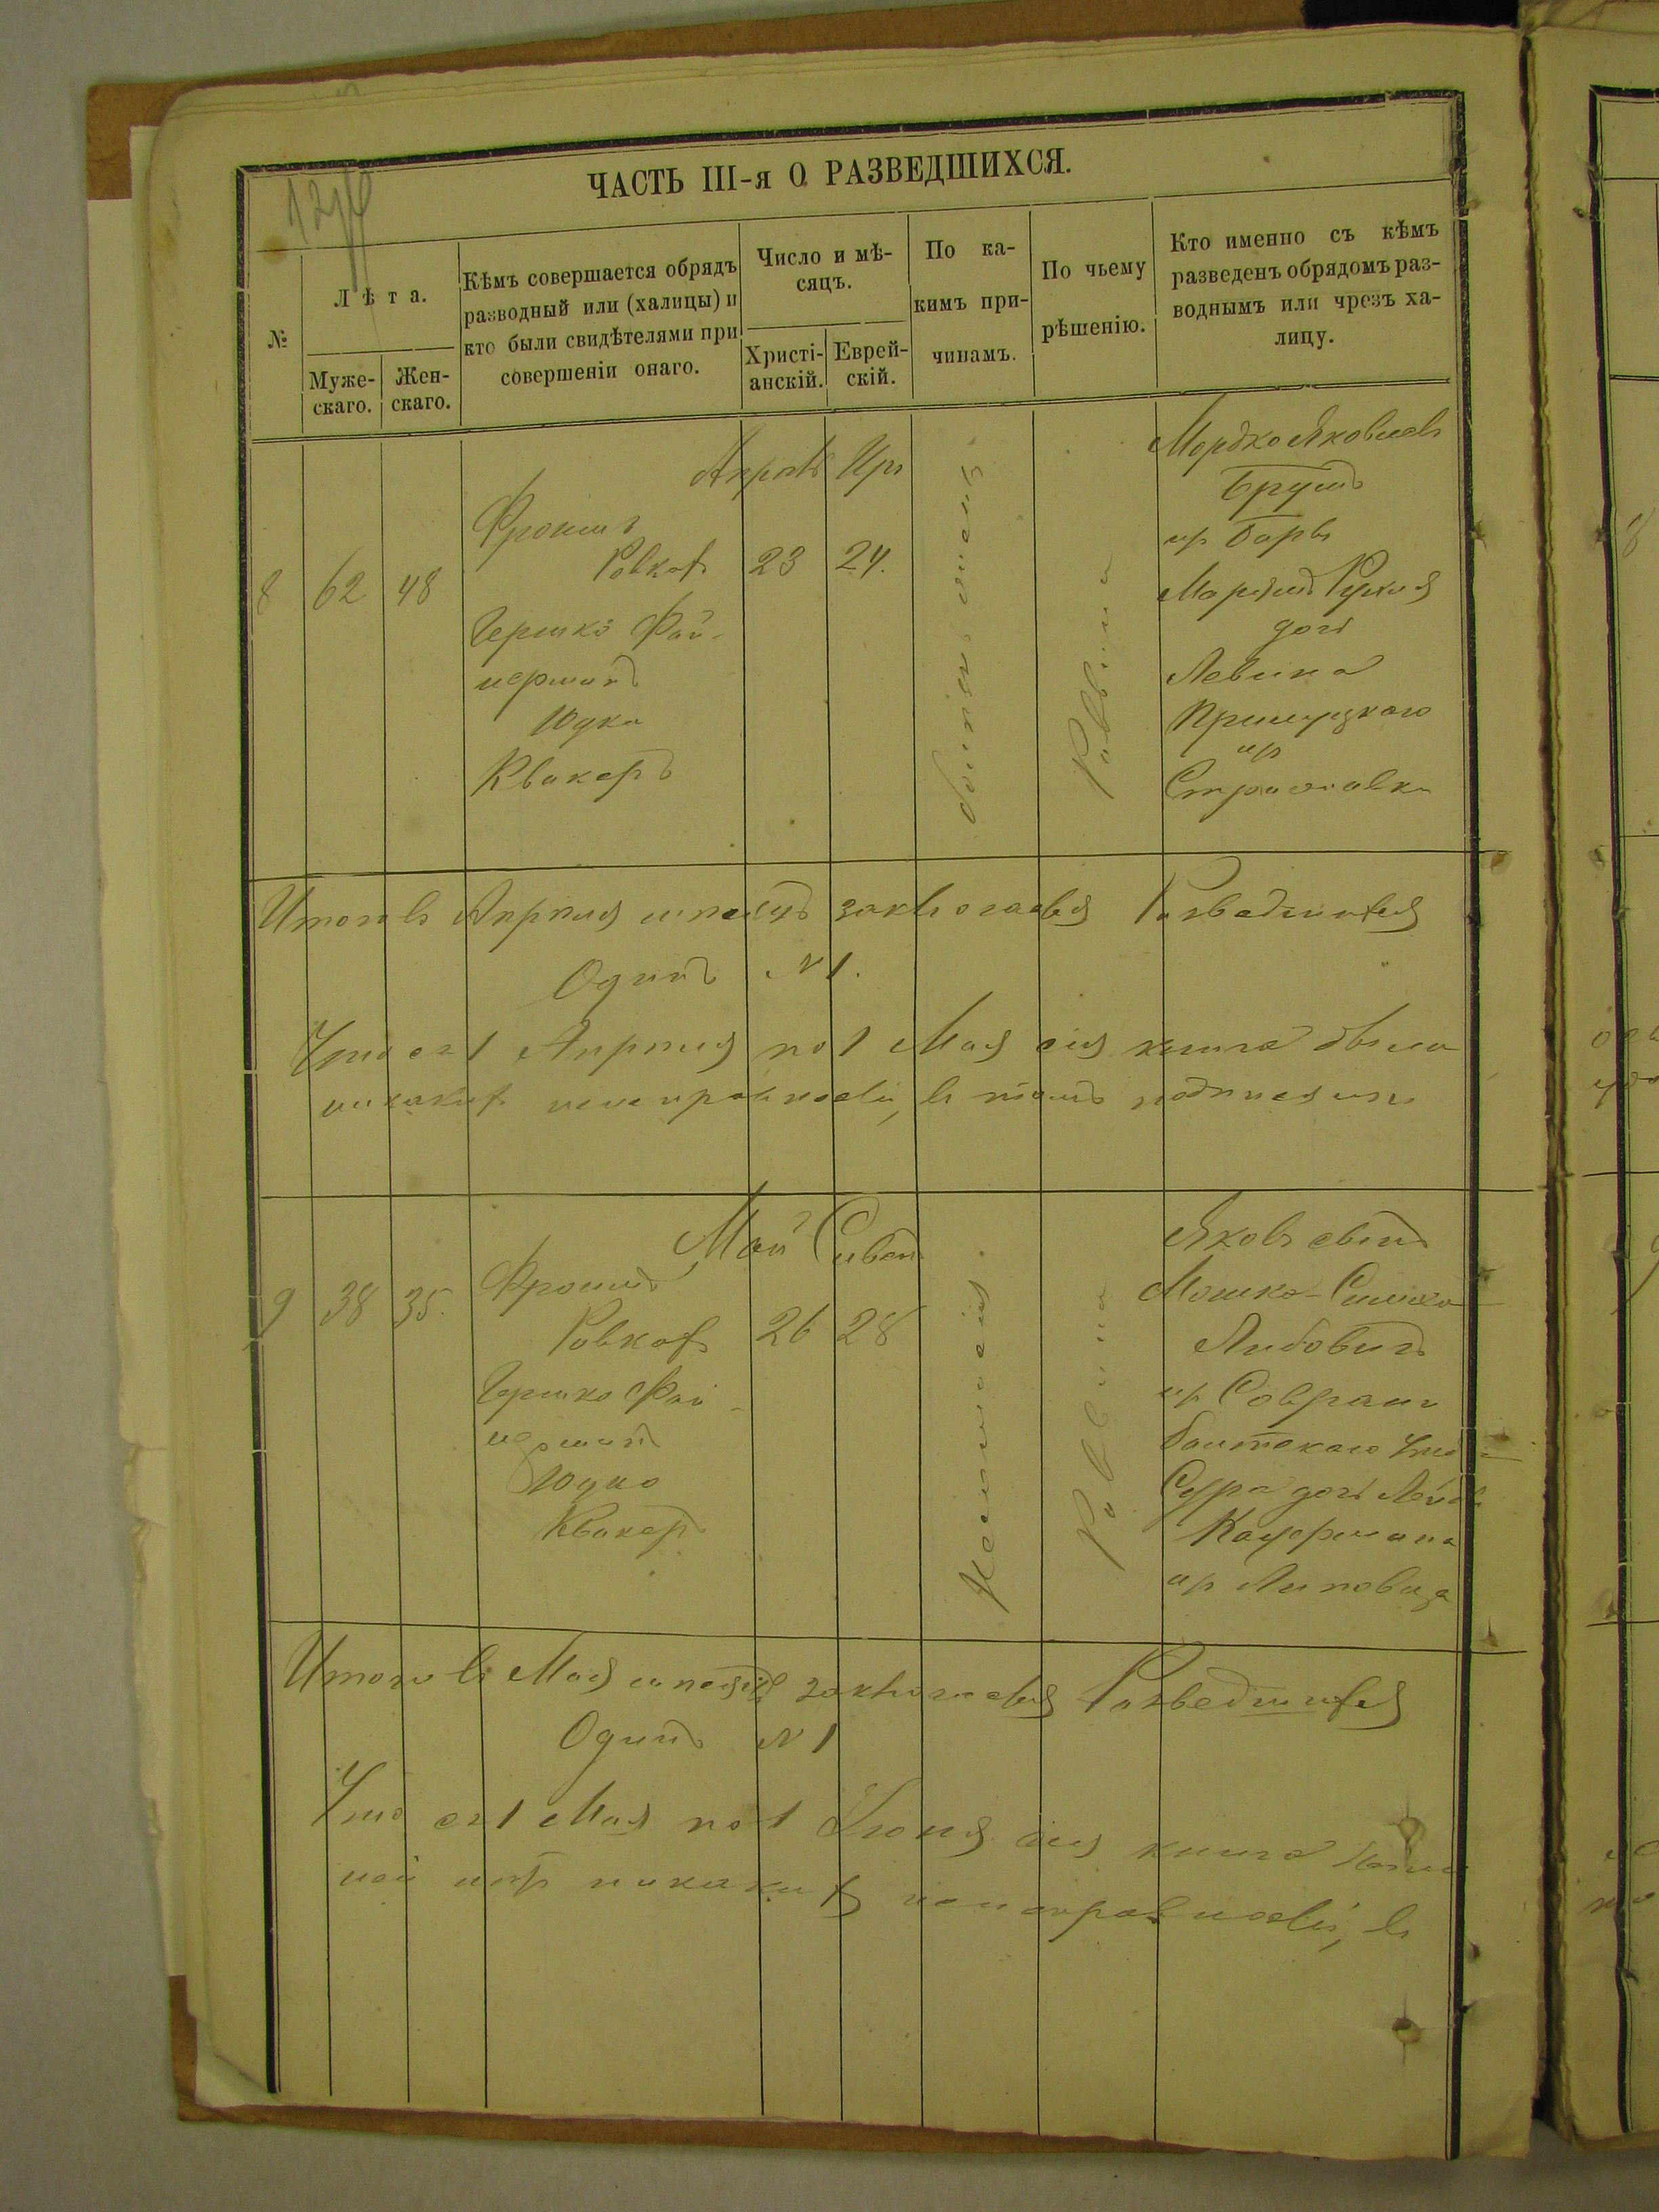 ЧАСТЬ III-я О РАЗВЕДШИХСЯ.
№
Лѣта.
Муже-
скаго.
Жен-
скаго.
Кѣмъ совершается обрядъ
разводный или (халицы) и
кто были свидѣтелями при
совершеніи онаго.
Число и мѣ-
сяцъ.
Христі-
анскій.
Еврей-
скій.
По ка-
кимъ при-
чинамъ.
По чьему
рѣшенію.
Кто именно съ кѣмъ
разведенъ обрядомъ раз-
воднымъ или чрезъ ха-
лицу.
8
62
48
Фроимъ
Ровках
Гершко Фай-
нерманъ
Юдко
Кваkеръ
Апрѣль
23
Иръ
24.
Раввина
Мордко Яковлевъ
мр Баръ
дочь
Левика
Прилуцкаго
мр
Стрижавки
Итого въ Апрѣля мѣсяцъ заключается Разведшихся
Одинъ № 1.
Что съ 1 Апрѣля по 1 Мая сія книга
никаких неисправностей, въ томъ подписемъ
9
38
35.
Фроимъ
Ровках
Гершко Фай-
нерманъ
Юдко
Квакеръ
Май
26
Сиван
28
Раввина
Яковъ сынъ
Мошко-Симха
мр Соврань
Балтскаго
Сура дочь Лейбы
Кауфмана
мр Липовца
Итого въ Мая мѣсяцъ заключается Разведшихся
Одинъ № 1
Что съ 1 Мая по 1 Іюня сія книга
ней нѣт никаких неисправностей, въ